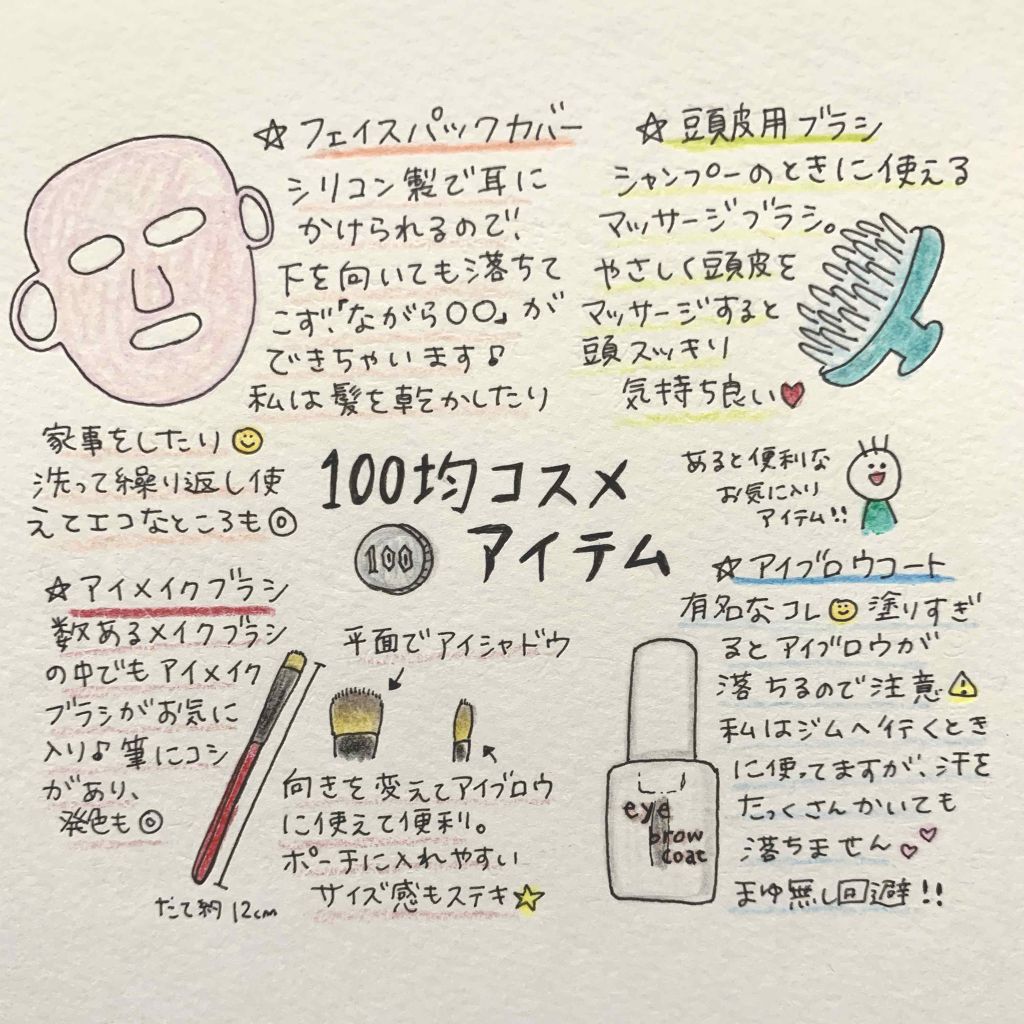 ☆フェイスパックカバー
シリコン製で耳に
かけられるので、
下を向いても落ちて
こず、「ながら〇〇」が
できちゃいます♪
私は髪を乾かしたり
家事をしたり
洗って繰り返し使
えてエコなところも◎
☆頭皮用ブラシ
シャンプーのときに使える
マッサージブラシ。
やさしく頭皮を
マッサージすると
頭スッキリ
気持ち良い♥
100均コスメ
アイテム
100
あると便利な
お気に入り
アイテム!!
☆アイメイクブラシ
数あるメイクブラシ
の中でもアイメイク
ブラシがお気に
入り♪筆にコシ
があり、
発色も◎
たて約12cm
平面でアイシャドウ
向きを変えてアイブロウ
に使えて便利。
ポーチに入れやすい
サイズ感もステキ☆
☆アイブロウコート
有名なコレ 塗りすぎ
るとアイブロウが
落ちるので注意⚠
私はジムへ行くとき
に使ってますが、汗を
たっくさんかいても
落ちません♡♡
まゆ無し回避!!
eye
brow
coat